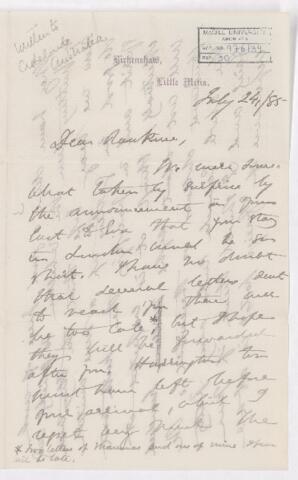 Written to
Adelaide
Australia
McGILL UNIVERSITY
ARCHIVES
ACC. NO. 976/39
REF. 30
Birkenshaw,
Little Metis.
July 24/85
Dear Rankine,
We were some-
what taken by surprise by
the announcement in your
last to Eva that your stay
in London would be so
short. I have no doubt
that several letters sent
to reach you there will
be too late,* but I hope
they will be forwarded
after you. Harrington too
must have left before
your arrival, which I
regret very much. The
* Two letters of Mamma's and one of mine
will be late.